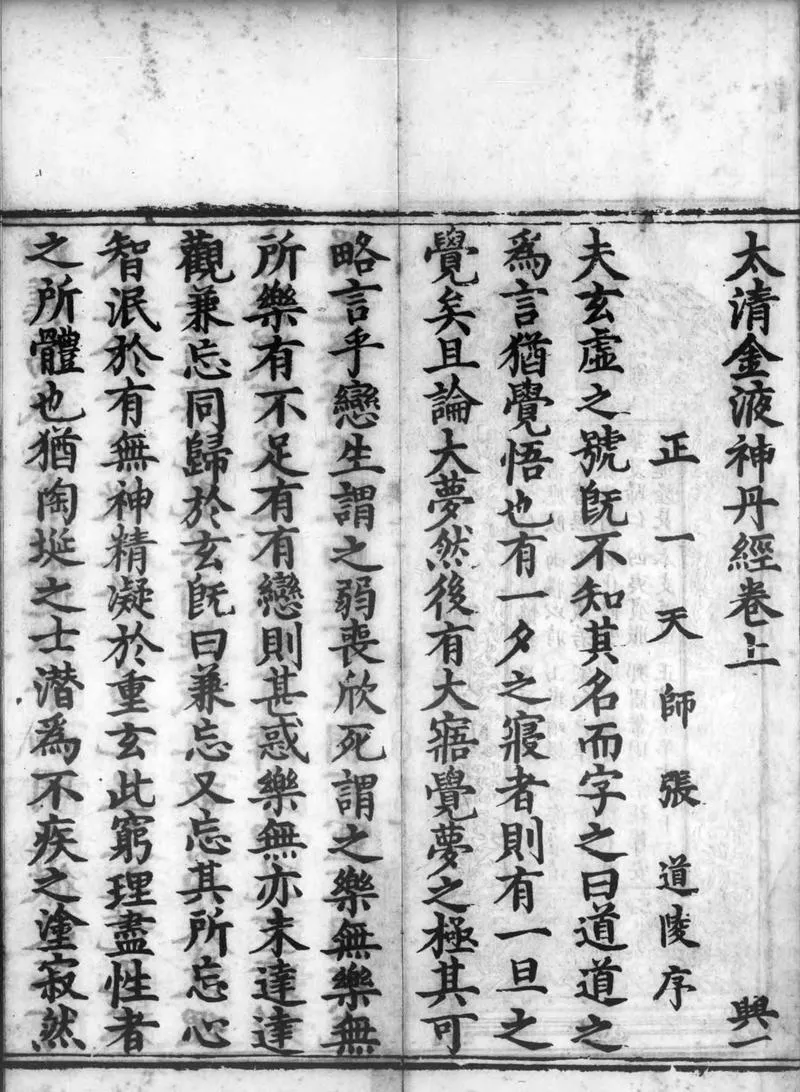 太清金液神丹經卷上 興一
正一天師張道陵序
夫玄虛之號旣不知其名而字之曰道道之
爲言猶覺悟也有一夕之寢者則有一旦之
覺矣且論大夢然後有大寤覺夢之極其可
略言乎戀生謂之弱喪欣死謂之樂無樂無
所樂有不足有有戀則甚惑樂無亦未達達
觀兼忘同歸於玄旣曰兼忘又忘其所忘心
智泯於有無神精凝於重玄此窮理盡性者
之所體也猶陶埏之士潛爲不疾之塗寂然